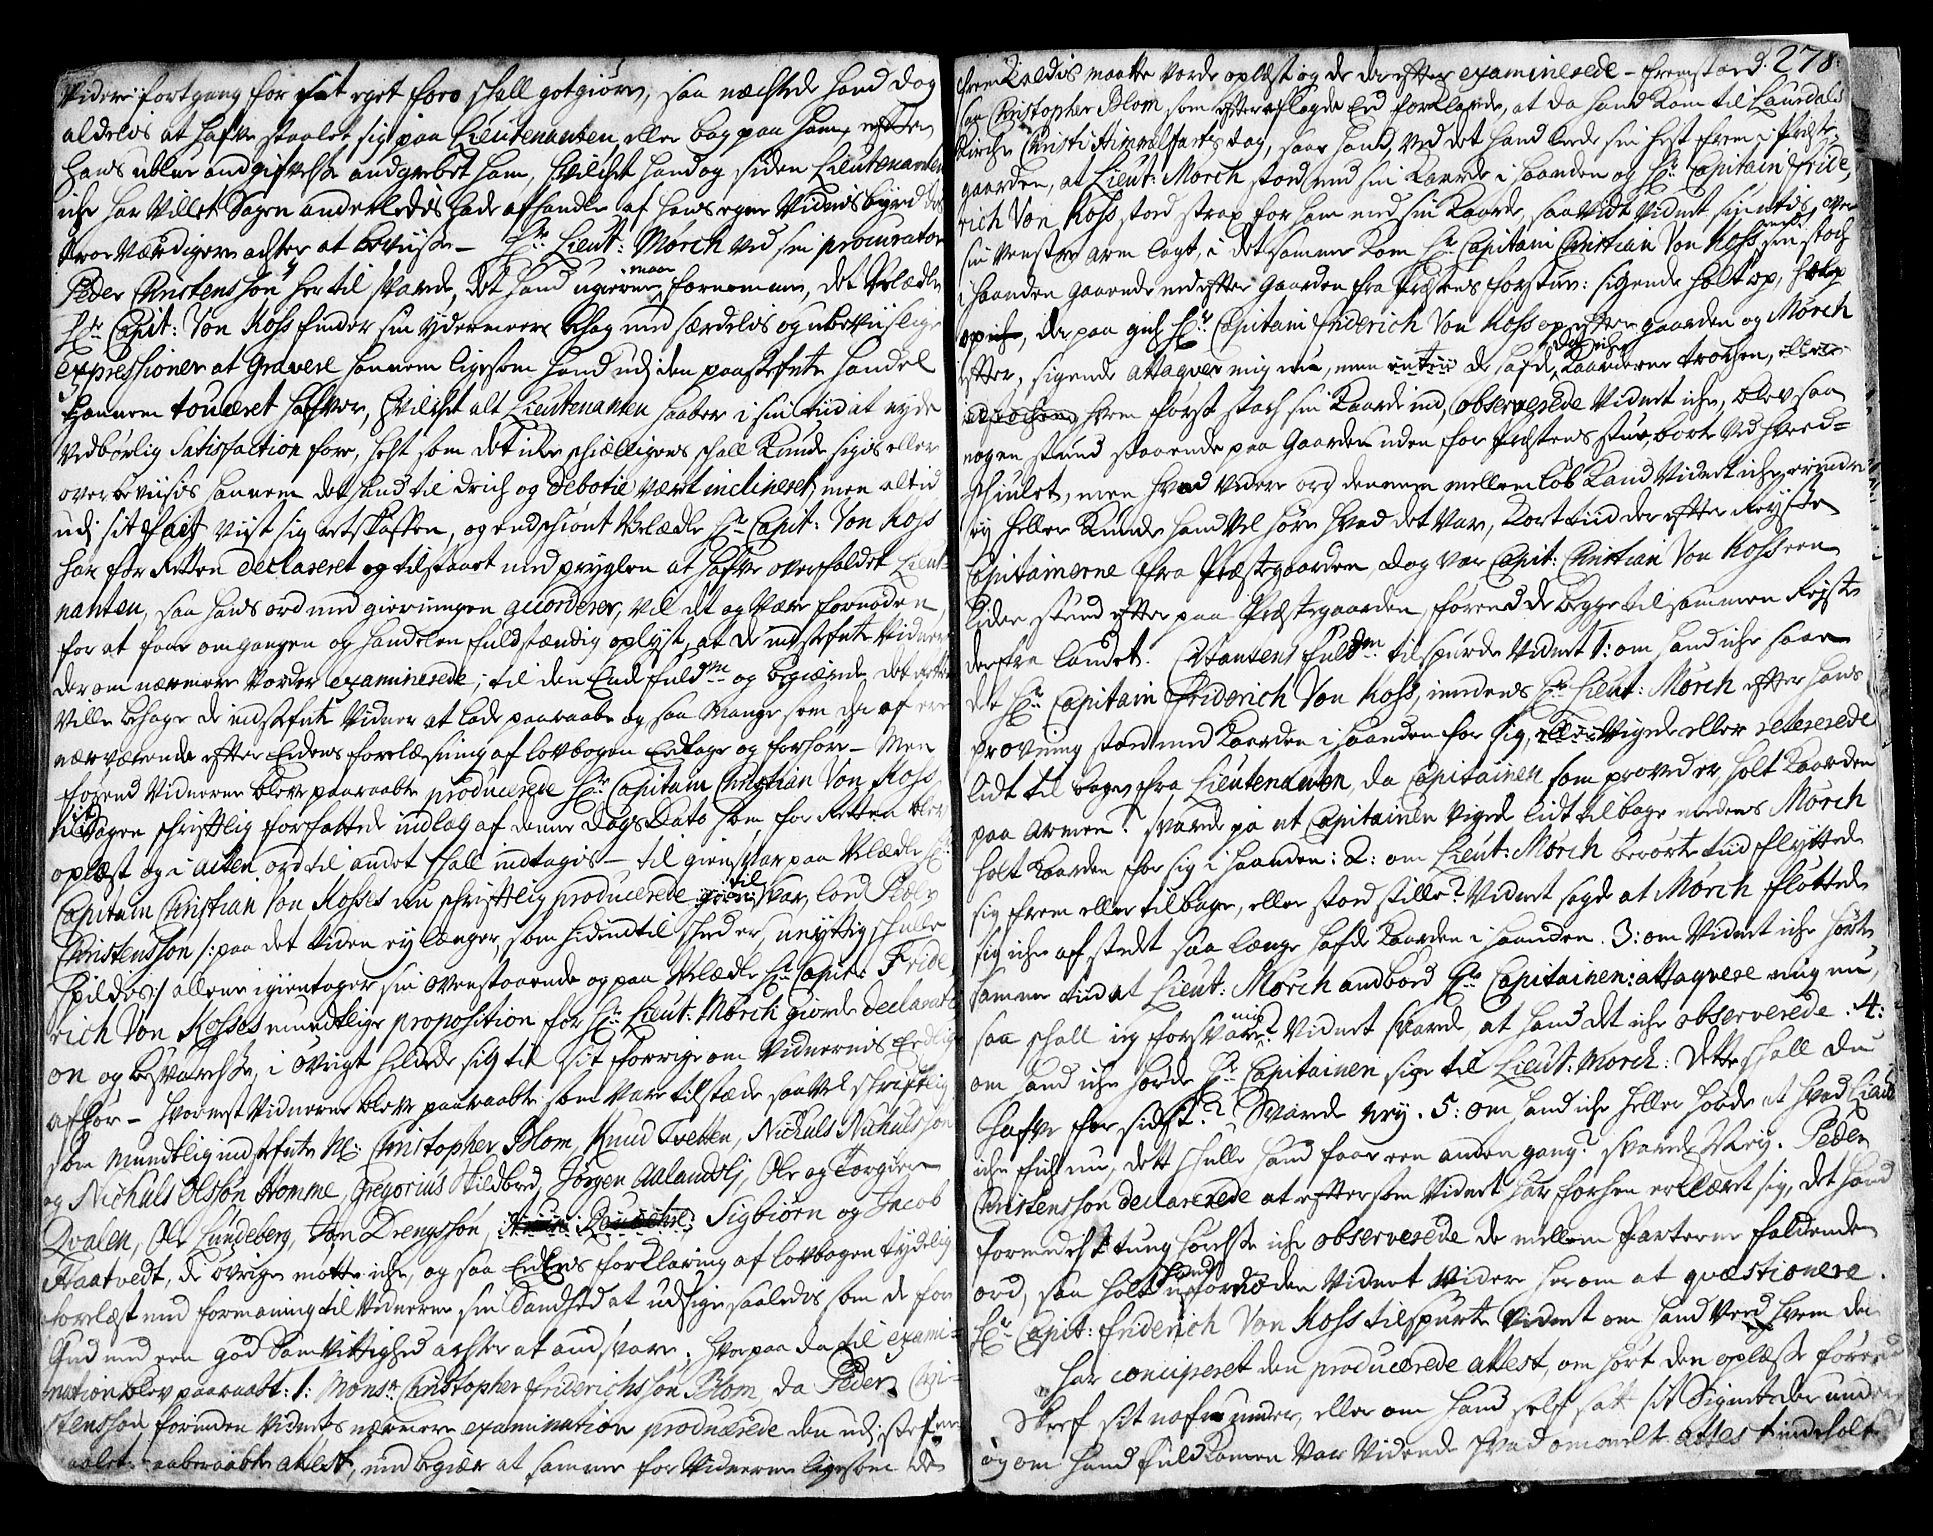 Videre fortgang for sit eget foro skall godtgiøre, saa nægtede hand dog
aldelis at hafve staalet sig paa Lieutenanten, eller bag paa ham, efter
hans udkne andgifvelse andgrebet ham, hvilchet hand og siden Lieutenanten
iche har villet Sagen anderledis lade afhandle af hans egne Vidnisbyrd des
troe værdigere achter at beviise – Hr: Lieut: Mørch ved sin procurator
Peder Christensøn her til svarede, det hand ugierne maa fornemme, det Velædle
Hr: Capit: Von Koss finder sin ydermeere behag med særdelis og ubeviislige
expressioner at Gravere hannem ligesom hand udj den paastefnte handel
hannem toucheret hafver, hvilchet alt Lieutenanten haaber i sin tiid at nyde
Vedbørlig Satisfaction fore, helst som det iche skielligen skall kunde sigis eller
overbeviisis hannem det hand til drich og debotie været inclineret, men altid
udj sit fait viist sig retskaffen, og endskiønt Velædle Hr: Capit: Von Koss
har for Retten declareret og tilstaaet med pryglen at hafve overfaldet Lieute
nanten, saa hans ord med gierningen accorderer, vil det og være fornøden,
for at faae omgangen og handelen fuldstændig oplyst, at de indstefnte Vidner
derom nærmere vorder examinerede, til den End fuldm: og begiærede, det retten
ville behage de indstefnte Vidner at lade paaraabe og saa mange som der af ere
nærværende efter Eedens forelæsning af lovbogen Eedtage og forhøre – Men
førend Vidnerne blev paaraabte producerede Hr: Capitain Christian Von Koss
i Sagen skriftlig forfattede indlæg af denne dags Dato som for Retten blev
oplæst og i acten ord til andet skall indtagis – til giensvar paa Velædle Hr:
Capitain Christian Von Kosses nu skriftlig producerede til svar, lod Peder
Christensøn /: paa det tiden ey længer, som hidindtil skeed er, unyttig skulle
spildes :/ allene igientager sin ovenstaaende og paa Velædle Hr: Capit: Fride
rich Von Kosses mundtlige proposition for Hr: Lieut: Mørch giorde declarati
on og besvarelse, i øvrigt holdede sig til sit forrige om Vidnernis Eedlige
afhør – hvornest Vidnerne blev paaraabte som vare tilstæde saavel skriftlig
som mundtlig indstefnte N: Christopher Blom, Knud Tvetten, Nichuls Nichulssøn
og Nichuls Olssøn Homme, Gregorius Kildbred, Jørgen Aalandslj, Ole og Torgier
Qvalen, Ole Lundeberg, Jon Drengssøn, Sigbiørn og Jacob
Flaatvedt, de øvrige møtte iche, og saa Eedens forklaring af lovbogen tydelig
forelæst med formaning til Vidnerne sin Sandhed at udsige saaledis som de for
Gud med een god Samvittighed achter at andsvare. hvorpaa da til exami-
nation blev paaraabt: 1: Monsr. Christopher Friderichssøn Blom, da Peder Chri-
stensøn forinden Vidnets nærmere examination producerede den udj stefne
maalet paaberaabte attest, med begiær at samme for Vidnerne ligesom de
278.
fremkaldis maatte vorde oplæst og de derefter examinerede – fremstoed
saa Christopher Blom, som efter aflagde Eed forklarede, at da hand kom til Laurdals
Kirche Christi Himmelfarts dag, saae hand, ved det hand leede sin hest frem i Præste
gaarden, at Lieut: Mørch stoed med sin kaarde i haanden og Hr: Capitain Fride
rich Von Koss stoed strax for ham med sin kaarde, saavidt Vidnet siuntis, over
sin venstre arm lagt, i det samme kom Hr: Capitain Christian Von Koss med sin stoch
i haanden gaaende ned efter gaarden fra Præstens forstue: sigende holt op, holt
op, der paa gich Hr: Capitain Friderich Von Koss op efter gaarden og Mørch
efter, sigende attaqver mig nu, men da iche de hafde kaarderne trochen,
hvem først stach sin kaarde ind, observerede Vidnet iche, blev saa
nogen stund staaende paa Gaarden uden for Præstens stue, borte ved hved=
skiulet, men hvad videre ord dennem mellem løb kand Vidnet iche erindre
ey heller kunde hand vel høre hvad det var, kort tiid der efter Reyste
Capitainerne fra Præstegaarden, dog var Capit: Christian Von Koss een
liden stund efter paa Præstegaarden, førend de begge tilsammen Reyste
derfra landet. Citantens fuldm: tilspurde Vidnet 1: om hand iche saae
det Hr: Capitain Friderich Von Koss, imedens Hr: Lieut: Mørch efter hans
prøvning stoed med kaarden i haanden for sig, vigede eller retererede
lidt til bage fra Lieutenanten, da Capitainen som prøved er, holt kaarden
paa armen? svarede jo at Capitainen vigede lidt tilbage medens Mørch
holt kaarden for sig i haanden: 2: om Lieut: Mørch berørte tiid flyttede
sig frem eller tilbage, eller stoed stille? Vidnet sagde at Mørch fløttede
sig iche af stedet saa længe hafde kaarden i haanden. 3: om Vidnet iche hørte
samme tiid at Lieut: Mørch andbød Hr: Capitainen: attaqvere mig nu,
saa skall ieg forsvare mig? Vidnet svarede, at hand det iche observerede. 4:
om hand iche hørde Hr: Capitainen sige til Lieut: Mørch: Dette skall du
hafve for sidst? Svarede Ney. 5: om hand iche heller hørde at hvad Lieut
iche fich nu, det skulle hand faae een anden gang? svarede Ney. Peder
Christensøn declarerede at eftersom Vidnet har forhen erklært sig, det hand
formedelst tung hørelse iche observerede de mellem Parterne faldende
ord, saa holt hand ufornøden Vidnet videre herom at qvæstionere.
Hr: Capit: Friderich Von Koss tilspurte Vidnet om hand veed hvem der
har conciperet den producerede attest, om hørt den oplæse førend
Skref sit nafn under, eller om hand self satt sit Signet der under
og om hand fuldkommen var vidende hvad ommelte attest indeholt